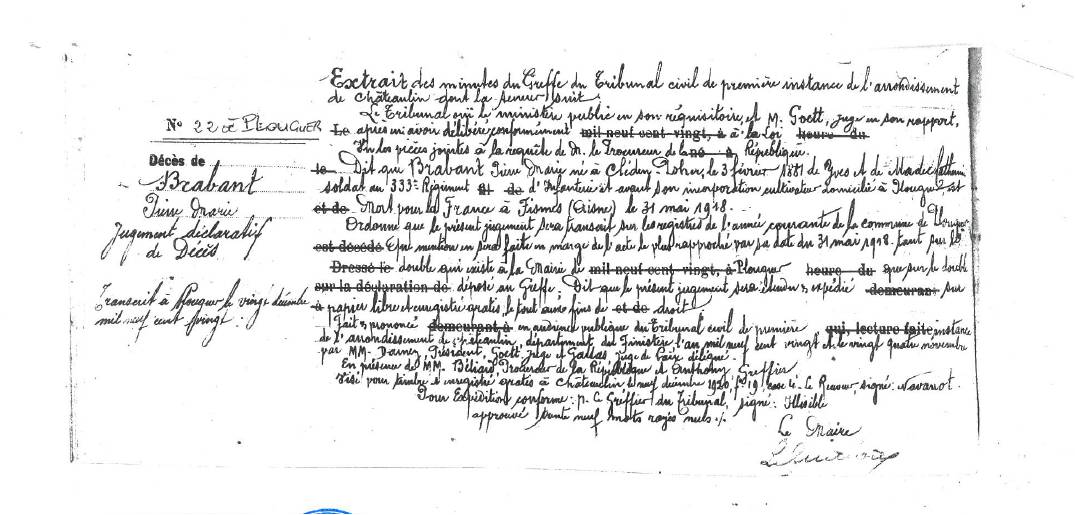 Extrait des minutes du Greffe du Tribunal civil de première instance de l'arrondissement
de Châteaulin dont la teneur suit
Le Tribunal ouï le ministère public en son réquisitoire, et M. Goett, juge en son rapport,
Le après en avoir délibéré conformément mil neuf cent vingt, à à la loi heure du
Vu les pièces jointes à la requête de M. le Procureur de la né à République.
le Dit que Brabant Pierre Marie né à Cléden-Poher, le 3 février 1881 de Yves et de Marie
soldat au 333e Régiment et de d'Infanterie et avant son incorporation cultivateur domicilié à Plouguer est
et de Mort pour la France à Fismes (Aisne) le 31 mai 1918.
Ordonne que le présent jugement sera transcrit sur les registres de l'année courante de la commune de Plouguer
est décédé Que mention en sera faite en marge de l'acte le plus rapproché par sa date du 31 mai 1918. tant sur le
Dressé le double qui existe à la Mairie de mil neuf cent vingt, à Plouguer heure du que sur le double
sur la déclaration de déposé au Greffe. Dit que le présent jugement sera expédié demeurant sur
à papier libre et enregistré gratis, le tout aux fins de et de droit
Fait et prononcé demeurant à en audience publique du Tribunal civil de première qui, lecture faite instance
de l'arrondissement de Châteaulin, département du Finistère l'an mil neuf cent vingt et le vingt quatre novembre
par MM. Damey, Président, Goett, juge et Gallas, juge de Paix délégué.
En présence de MM. Procureur de la République et Anthony Greffier
Visé pour timbre et enregistré gratis à Châteaulin le neuf décembre 1920, fo 19, case Le Receveur signé: Navarrot.
Pour Expédition conforme: p. le Greffier du Tribunal, signé: Illisible
approuvé neuf mots rayés nuls ./.
Le Maire
No 22 DE PLOUGUER
Décès de
Brabant
Pierre Marie
Jugement déclaratif
de Décès
Transcrit à Plouguer le vingt décembre
mil neuf cent vingt: